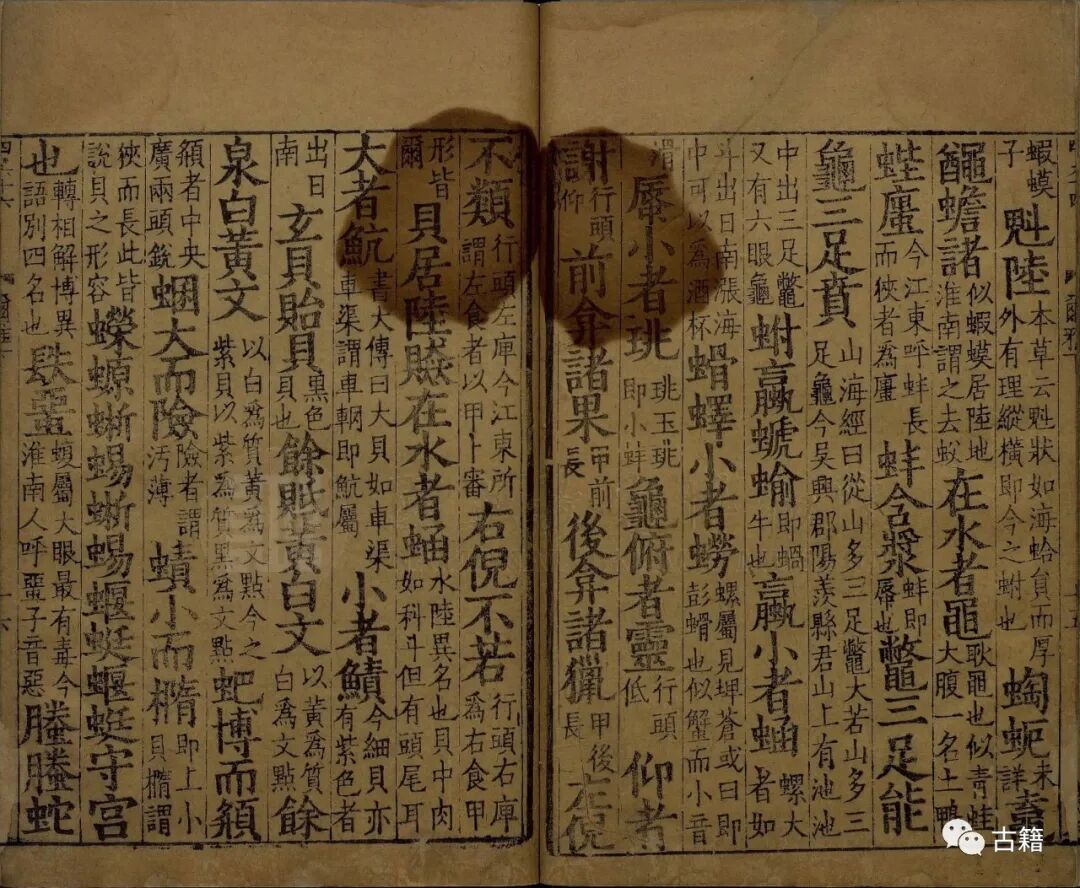 蝦蟆子魁陸本草云魁狀如海蛤負而厚外有理縱橫即今之蚶也蜪蚅未詳鼀
𪓰蟾諸似蝦蟆居陸地淮南謂之去蚥在水者黽耿黽也似青蛙大腹一名土鴨
蜌螷今江東呼蚌長而狹者為螷蚌含漿蚌即蜃也鼈三足能
龜三足賁山海經曰從山多三足鼈大苦山多三足龜今吳興郡陽羨縣君山上有池池
中出三足鼈又有六眼龜蚹蠃螔蝓即蝸牛也蠃小者蜬螺大者如
斗出日南漲海中可以為酒杯螖蠌小者蟧螺屬見埤蒼或曰即彭螖也似蟹而小音
滑蜃小者珧珧玉珧即小蚌龜俯者靈行頭低仰者
謝行頭仰前弇諸果甲前長後弇諸獵甲後長左倪
不類行頭左庳今江東所謂左食者以甲卜審右倪不若行頭右庳為右食甲
形皆爾貝居陸贆在水者蜬水陸異名也貝中肉如科斗但有頭尾耳
大者魧書大傳曰大貝如車渠車渠謂車輞即魧屬小者鰿今細貝亦有紫色者
出日南玄貝貽貝黑色貝也餘貾黃白文以黃為質白為文點餘
泉白黃文以白為質黃為文點今之紫貝以紫為質黑為文點蚆博而頯
頯者中央廣兩頭銳蜠大而險險者謂汚薄蟦小而橢即上小貝橢謂
狹而長此皆說貝之形容蠑螈蜥蜴蜥蜴蝘蜓蝘蜓守宮
也轉相解博異語別四名也镻蝁蝮屬大眼最有毒今淮南人呼蝁子音惡螣螣蛇
古籍